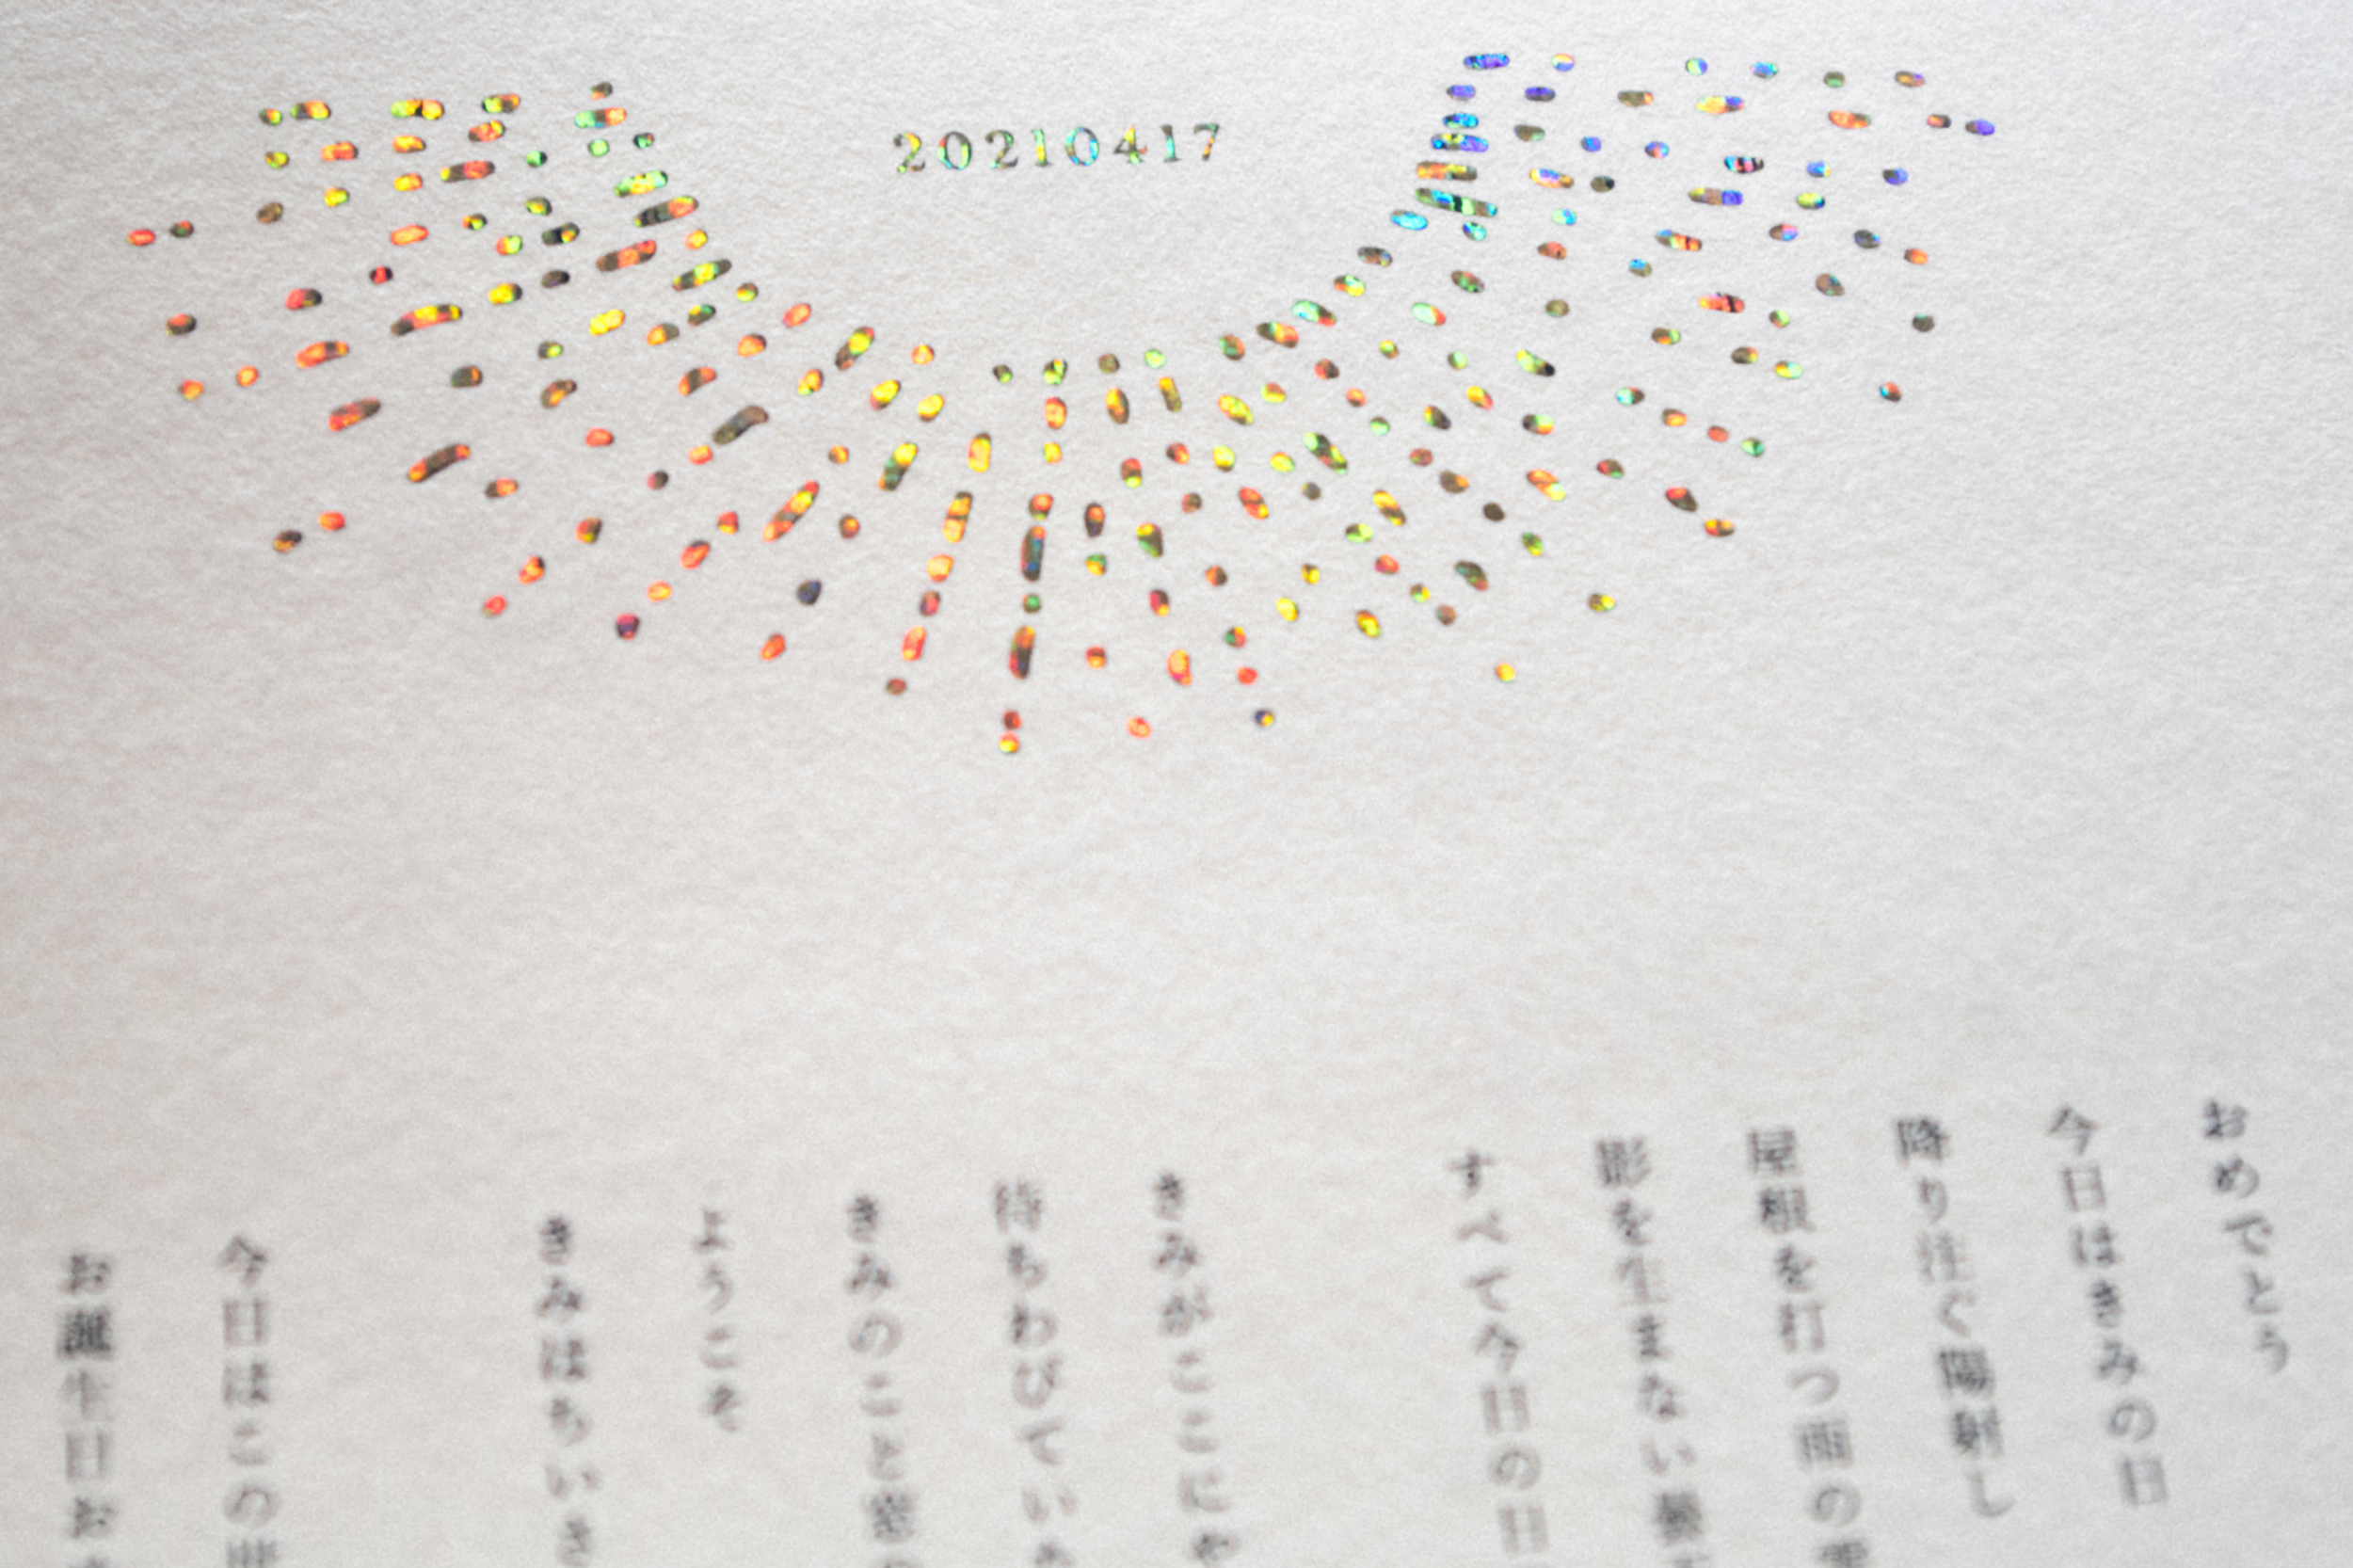 20210417
おめでとう
今日はきみの日
降り注ぐ陽射し
屋根を打つ雨の
影を生まない
すべて今日の日
きみがここにや
待ちわびてい
きみのこと
ようこそ
きみはちいさ
今日はこの世
お誕生日お